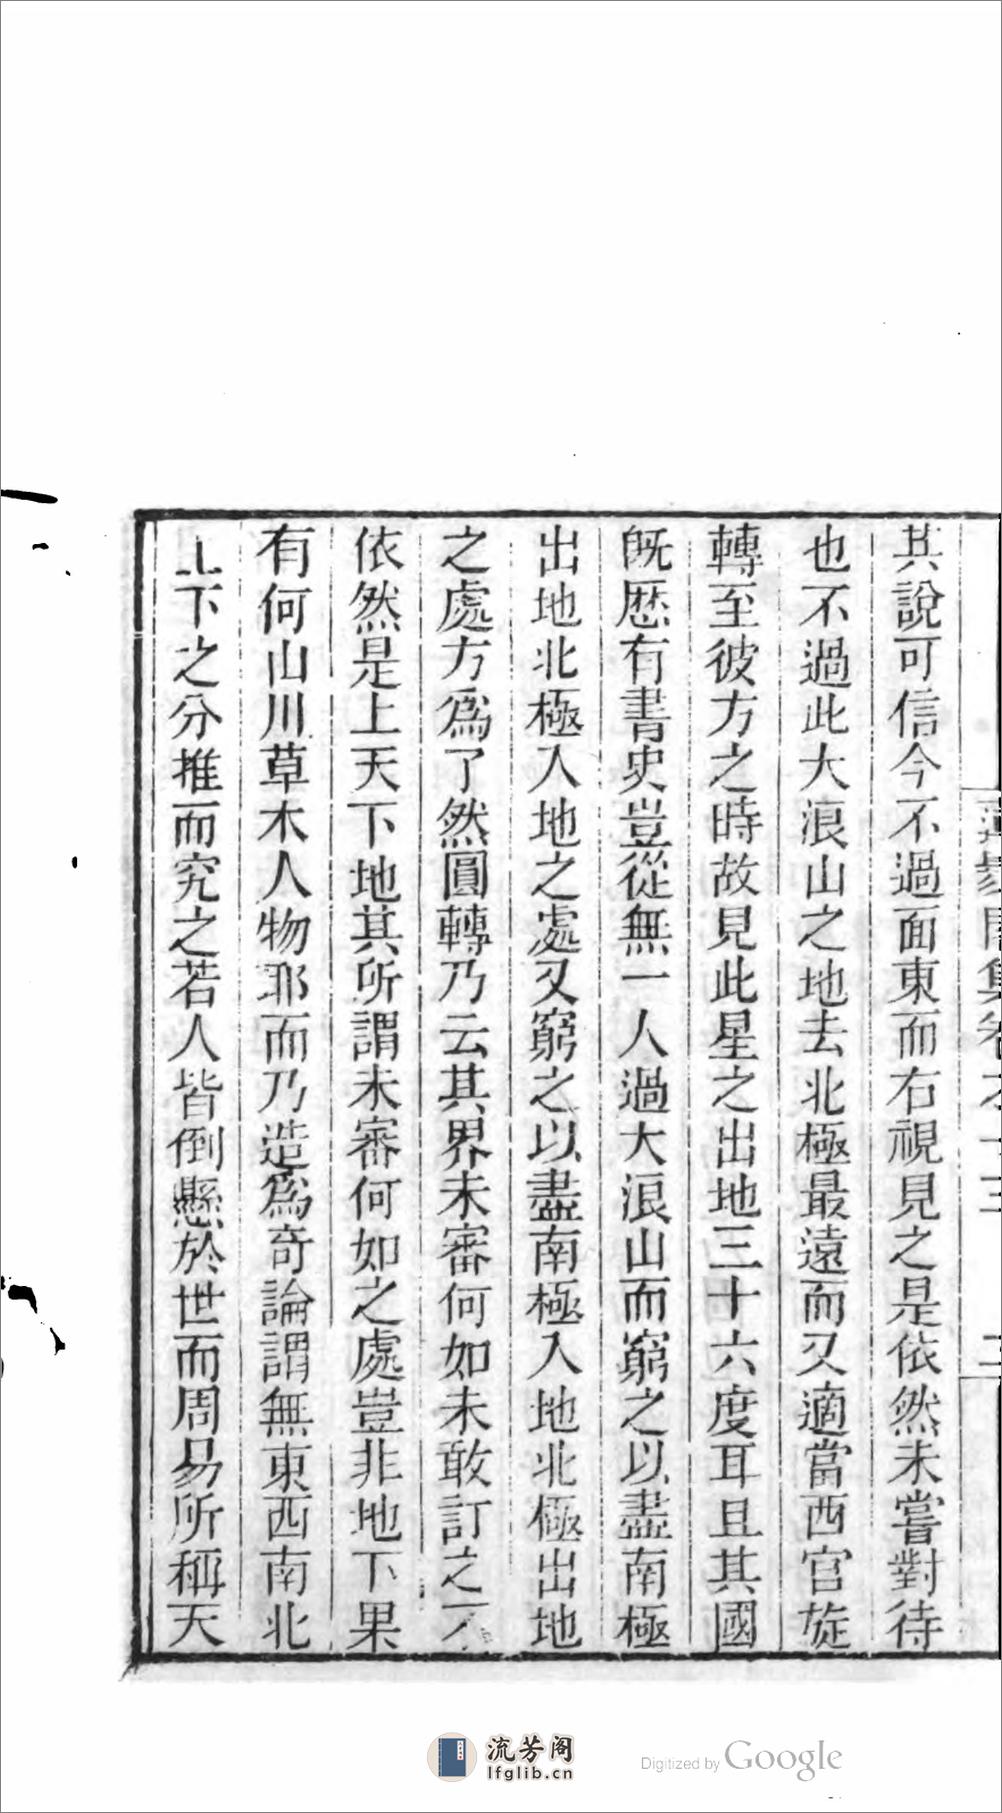 其說可信今不過面東而右視見之是依然未嘗對待
也不過此大浪山之地去北極最遠而又適當西官旋
轉至彼方之時故見此星之出地三十六度耳且其國
旣厯有書史豈從無一人過大浪山而窮之以盡南極
出地北極入地之處又窮之以盡南極入地北極出地
之處方爲了然圓轉乃云其界未審何如未敢訂之
依然是上天下地其所謂未審何如之處豈非地下果
有何山川草木人物耶而乃造爲奇論謂無東西南北
上下之分推而究之若人皆倒懸於世而周易所稱天
集卷之十三
二
流芳阁
lfglib.cn
Digitized by Google